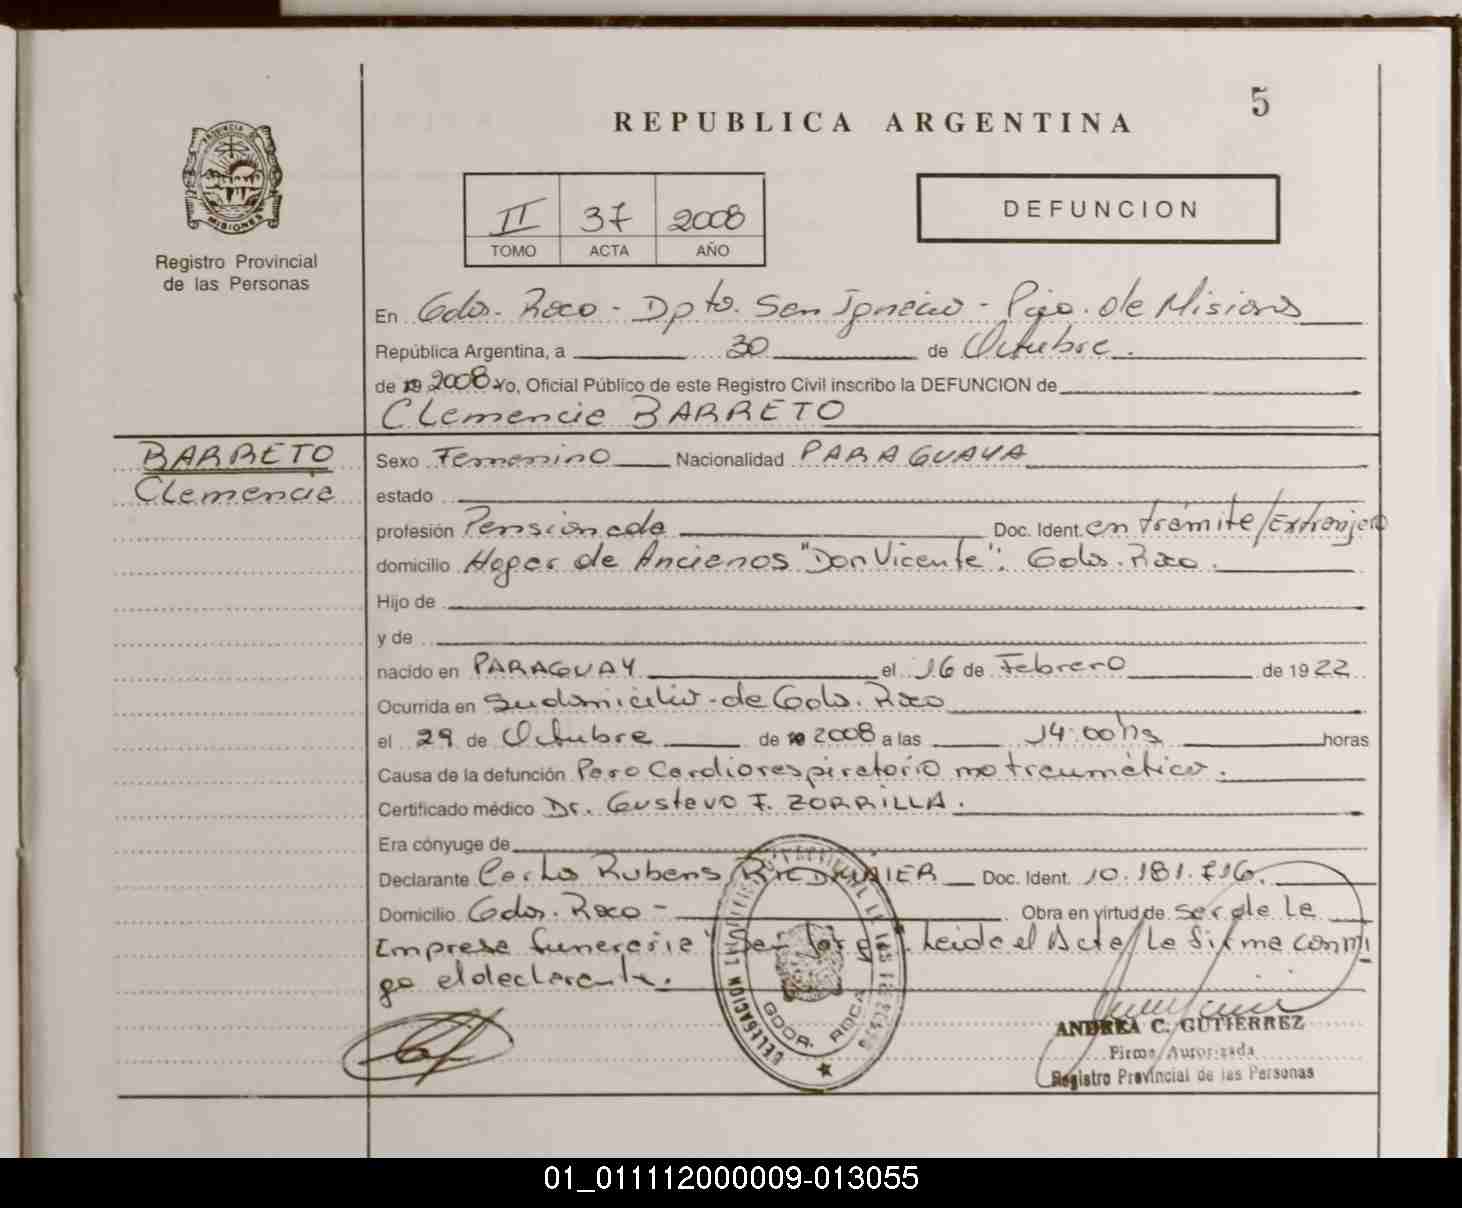 5
REPUBLICA ARGENTINA
PROVINCIA DE
MISIONES
Registro Provincial
de las Personas
II 37 2008
TOMO ACTA AÑO
DEFUNCION
En Gdor. Roca - Dpto. San Ignacio - Pcia. de Misiones
República Argentina, a 30 de Octubre.
de 19 2008 Yo, Oficial Público de este Registro Civil inscribo la DEFUNCION de
Clemencia BARRETO
BARRETO
Clemencia
Sexo Femenino Nacionalidad PARAGUAYA
estado
profesión Pensionada Doc. Ident. en trámite/Extranjero
domicilio Hogar de Ancianos "Don Vicente". Gdor. Roca.
Hijo de
y de
nacido en PARAGUAY el 16 de Febrero de 1922
Ocurrida en su domicilio - de Gdor. Roca
el 29 de Octubre de 19 2008 a las 14:00hs horas
Causa de la defunción Paro Cardiorespiratorio no traumático.
Certificado médico Dr. Gustavo F. ZORRILLA.
Era cónyuge de
Declarante Carlos Rubens Doc. Ident. 10.181.716.
Domicilio Gdor. Roca - Obra en virtud de ser de la
Impresa funeraria Leida el Acta, la firma conmi
go el declarante.
DELEGACION
GDOR. ROCA
ANDREA C. GUTIERREZ
Firma Autorizada
Registro Provincial de las Personas
01_011112000009-013055